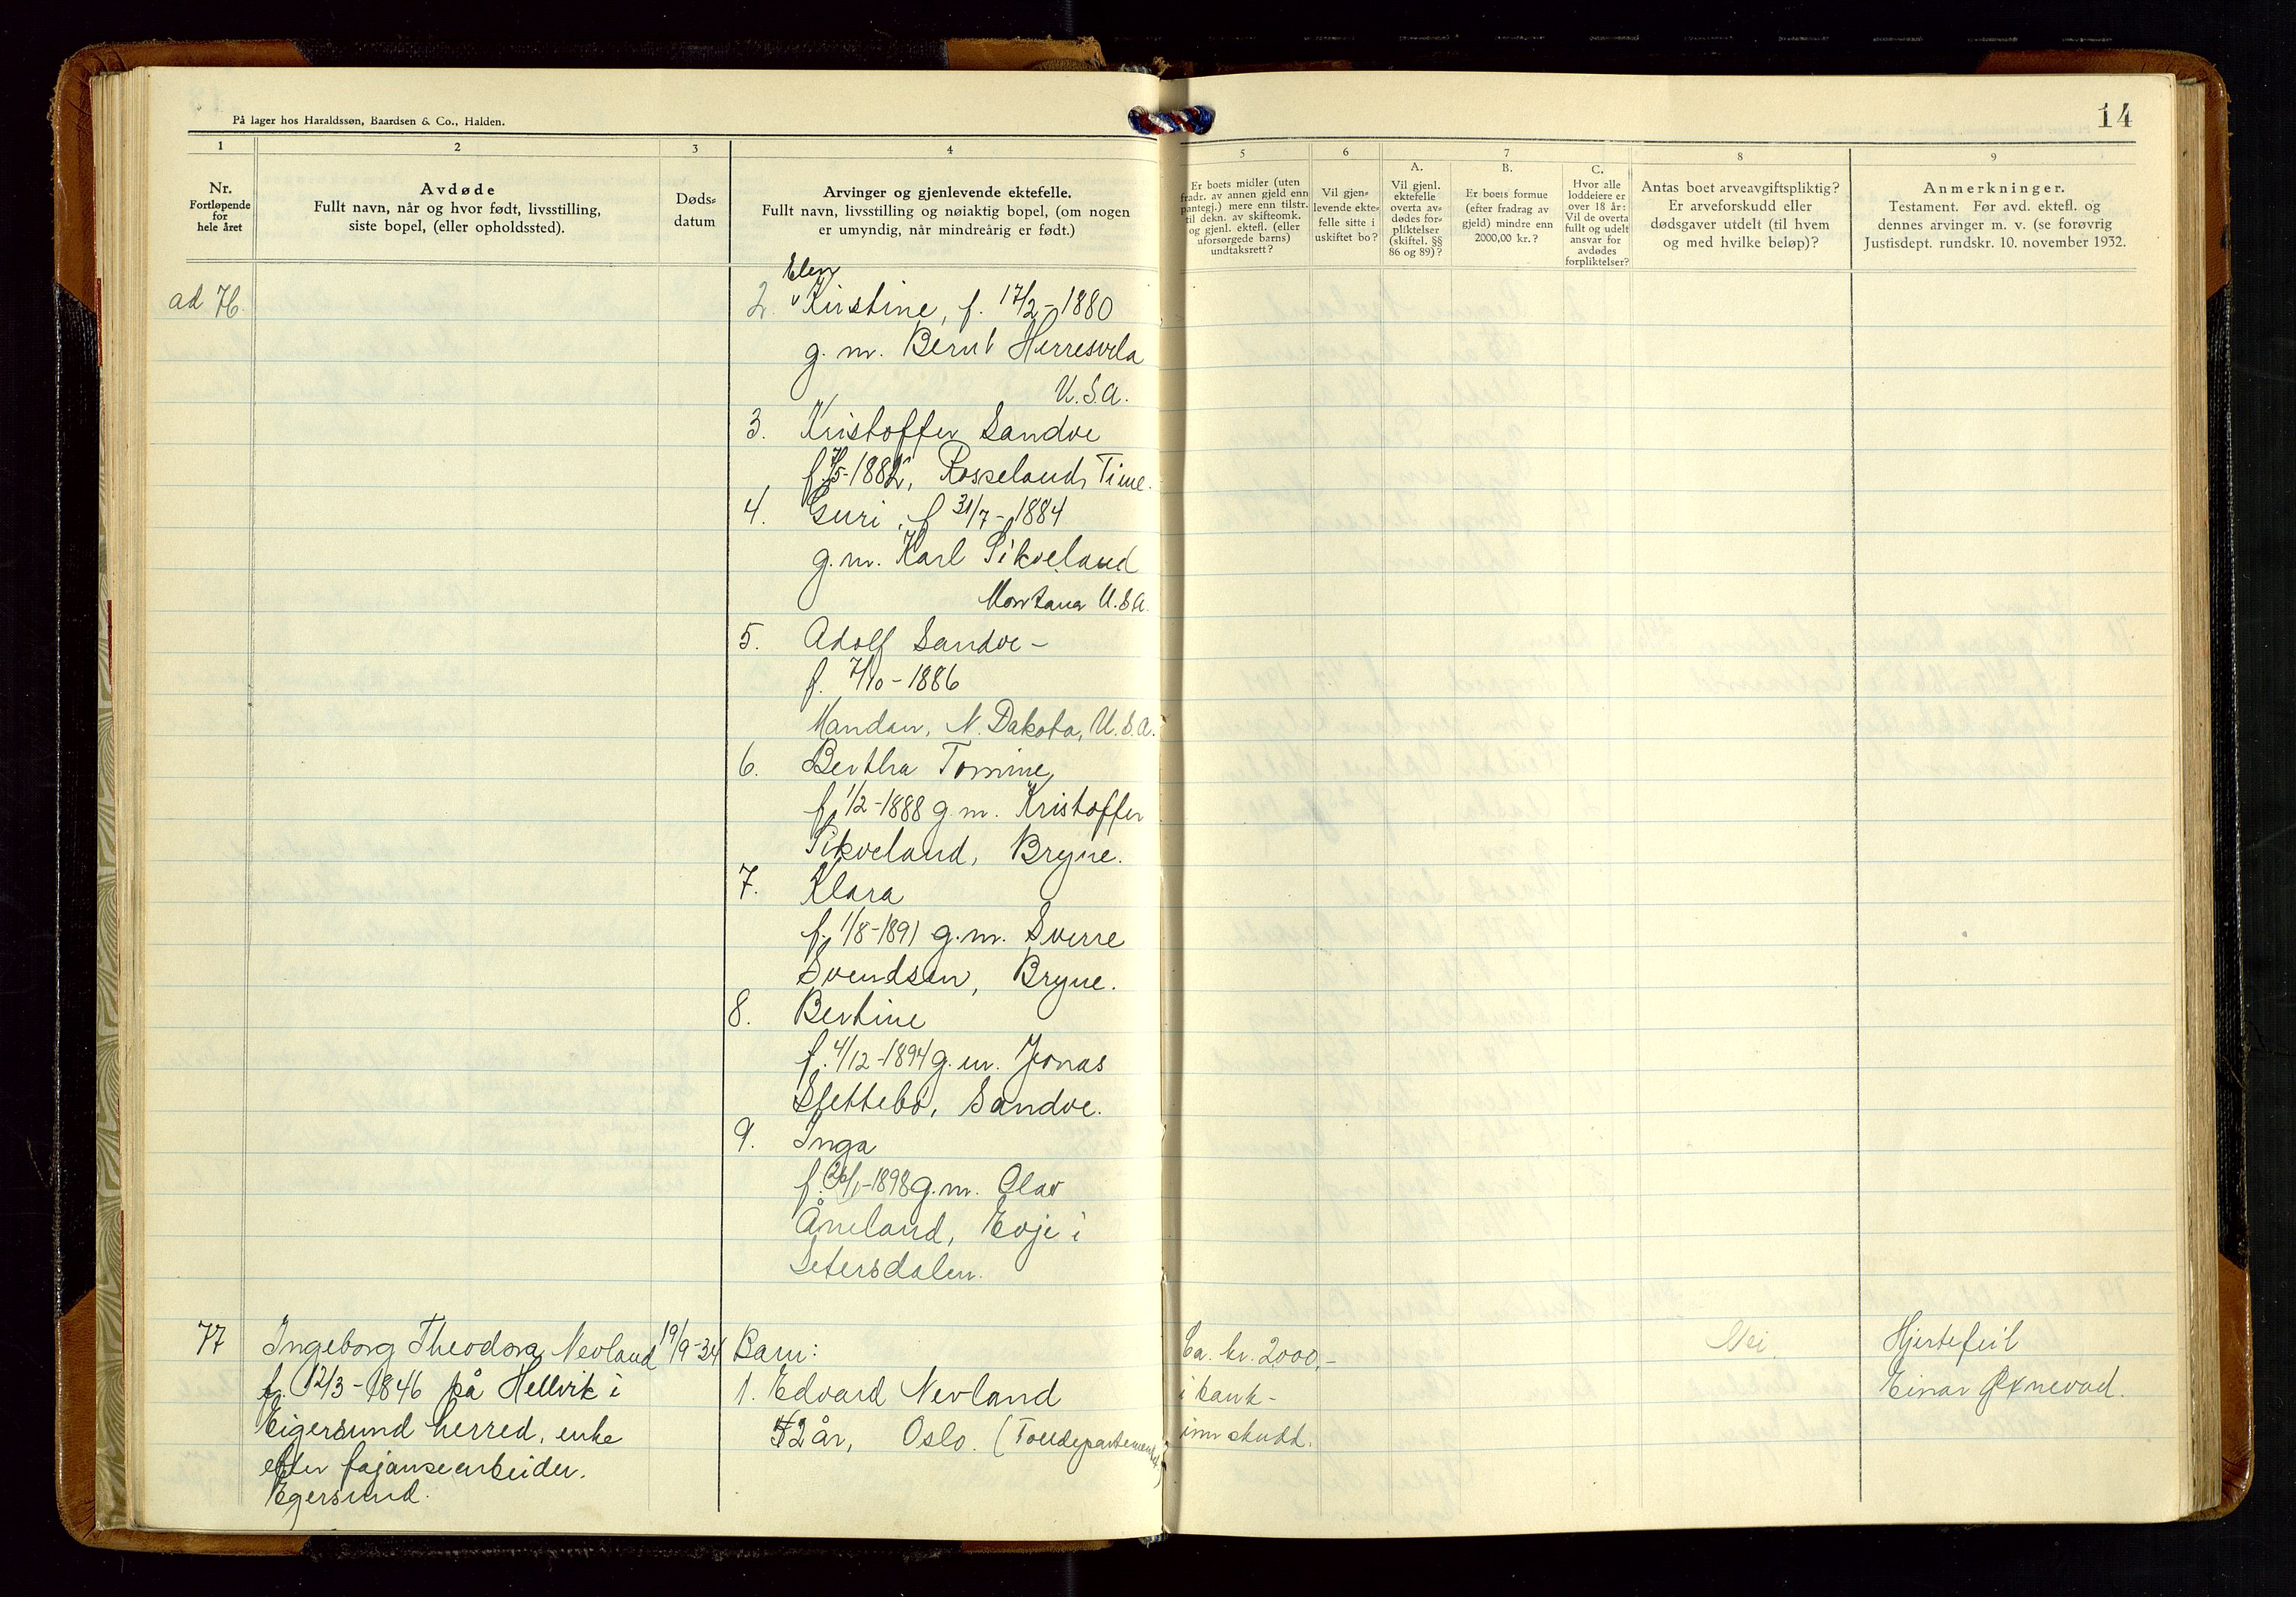 På lager hos Haraldssøn, Baardsen & Co., Halden.
14
1
2
3
4
5
6
7
8
9
Nr.
Fortløpende
for
hele året
Avdøde
Fullt navn, når og hvor født, livsstilling,
siste bopel, (eller opholdssted).
Døds-
datum
Arvinger og gjenlevende ektefelle.
Fullt navn, livsstilling og nøiaktig bopel, (om nogen
er umyndig, når mindreårig er født.)
Er boets midler (uten
fradr. av annen gjeld enn
pantegj.) mere enn tilstr.
til dekn. av skifteomk.
og gjenl. ektefl. (eller
uforsørgede barns)
undtaksrett?
Vil gjen-
levende ekte-
felle sitte i
uskiftet bo?
A.
Vil gjenl.
ektefelle
overta av-
dødes for-
pliktelser
(skiftel. §§
86 og 89)?
B.
Er boets formue
(efter fradrag av
gjeld) mindre enn
2000,00 kr.?
C.
Hvor alle
loddeiere er
over 18 år:
Vil de overta
fullt og udelt
ansvar for
avdødes
forpliktelser?
Antas boet arveavgiftspliktig?
Er arveforskudd eller
dødsgaver utdelt (til hvem
og med hvilke beløp)?
Anmerkninger.
Testament. Før avd. ektefl. og
dennes arvinger m. v. (se forøvrig
Justisdept. rundskr. 10. november 1932.
ad 76.
Elen
2. Kirstine, f. 17/2-1880
g. m. Bernt Herresvela
U.S.A.
3. Kristoffer Sandve
f. 7/5-1882, Rosseland, Time.
4. Guri, f 31/7-1884
g. m. Karl Sikveland
Montana U.S.A.
5. Adolf Sandve -
f. 7/10-1886
Mandan, N. Dakota, U.S.A.
6. Bertha Tomine,
f. 1/2-1888 g. m. Kristoffer
Sikveland, Bryne.
7. Klara
f. 1/8-1891 g. m. Sverre
Svendsen, Bryne.
8. Bertine
f. 4/12-1894 g. m. Jonas
Slettebø, Sandve.
9. Inga
f. 26/1-1898 g. m. Olav
Åneland, Evje i
Setersdalen.
77 Ingeborg Theodora Nevland 19/9-34 Barn: Ca. kr. 2000,- Nei. Hjertefeil
f. 12/3-1846 på Hellvik i 1. Edvard Nevland i bank- Einar Øxnevad.
Eigersund herred, enke 52 år, Oslo. (Tolldepartementet) innskudd.
efter fajansearbeider.
Egersund.